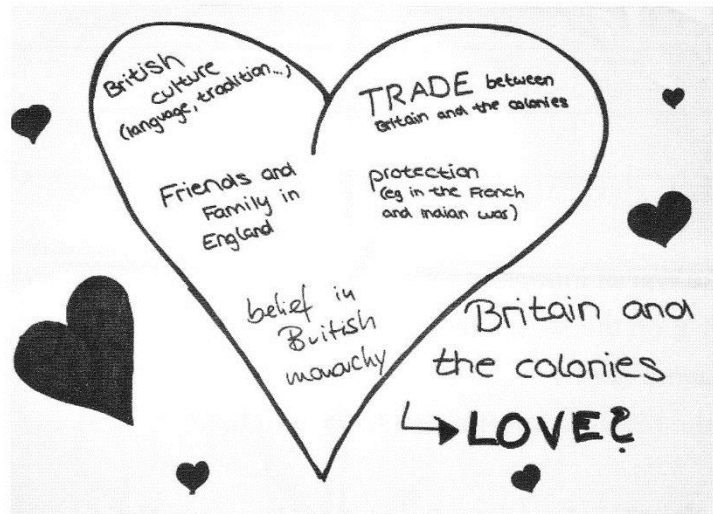 British
culture
(language, tradition...)
TRADE between
Britain and the colonies
Friends and
Family in
England
protection
(eg in the French
and Indian war)
belief in
British
monarchy
Britain and
the colonies
↳ LOVE?